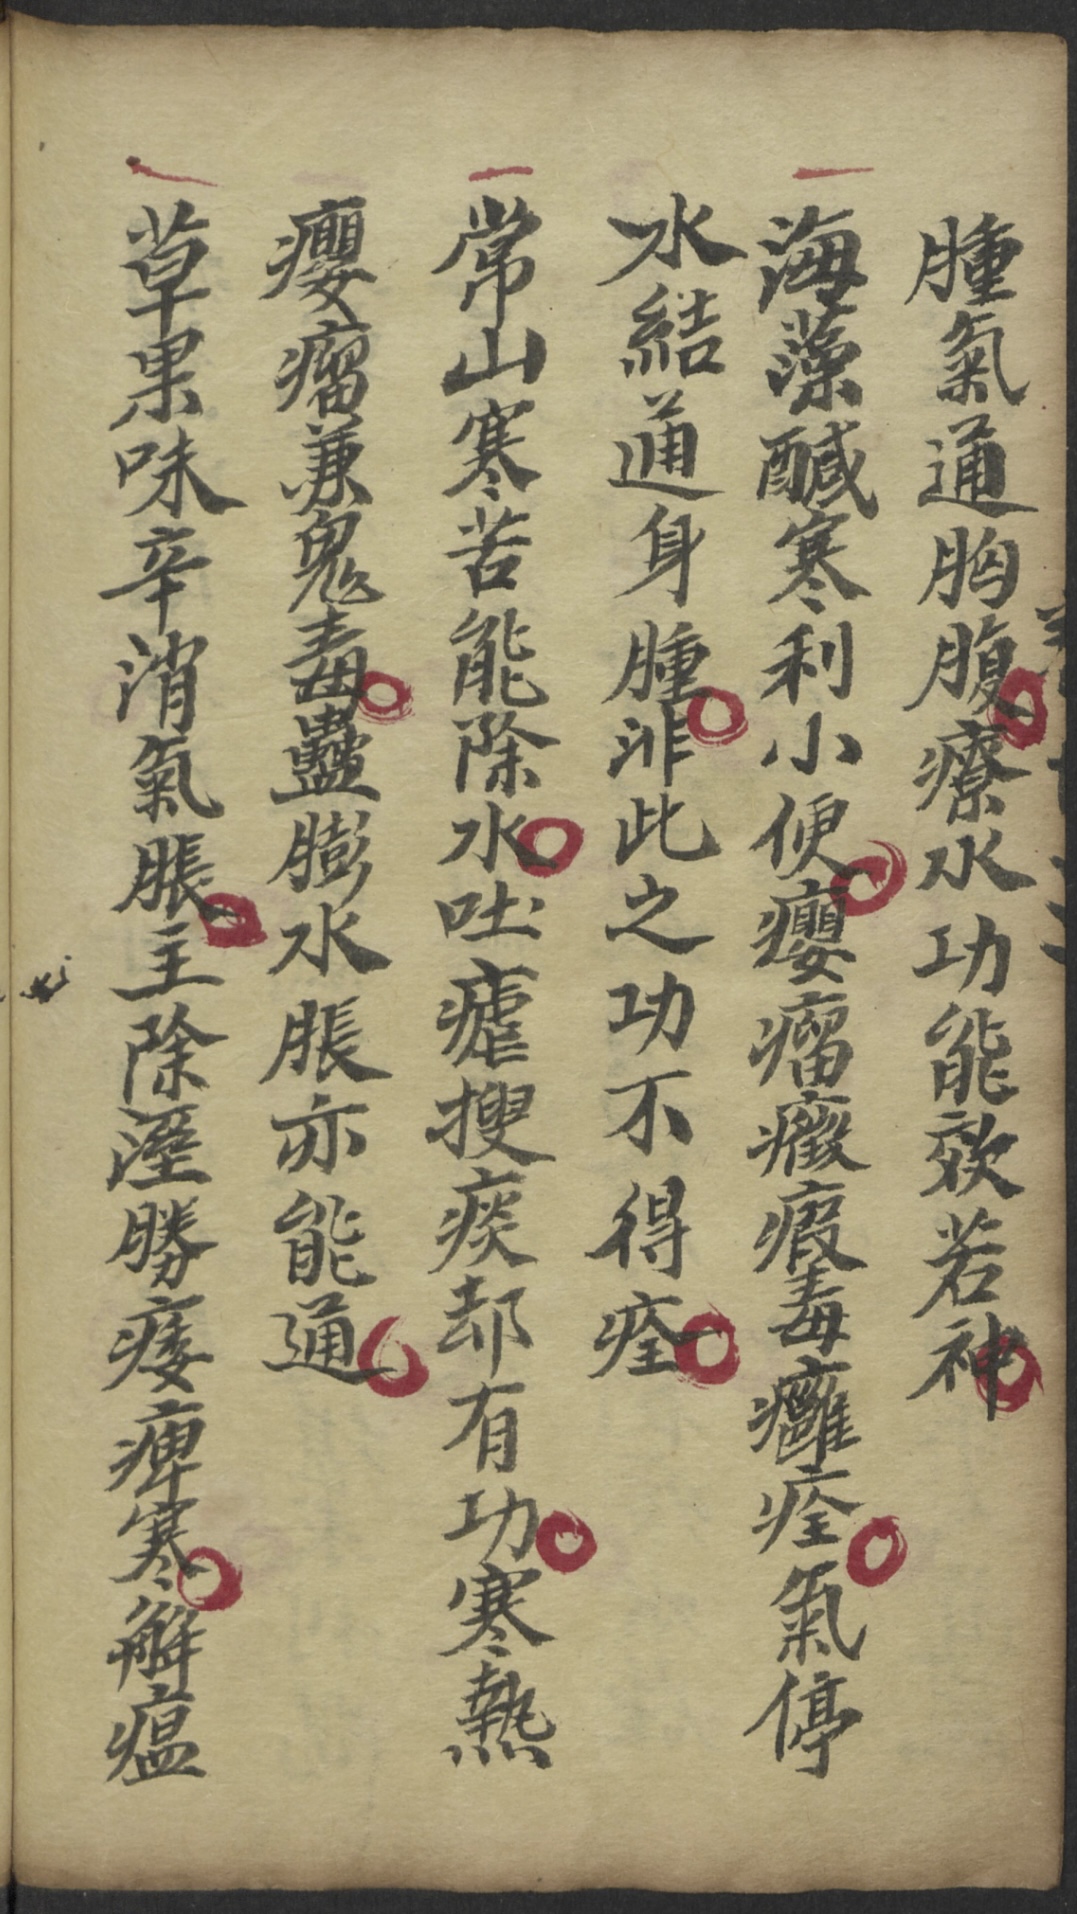 腫氣通胸腹療水功能效若神
海藻醎寒利小便癭瘤癥瘕毒癰痊氣停
水結通身腫非此之功不得痊
常山寒苦能除水吐瘧搜痰却有功寒熱
癭瘤兼鬼毒蠱膨水脹亦能通
草果味辛消氣脹主除溼勝痿痺寒解瘟